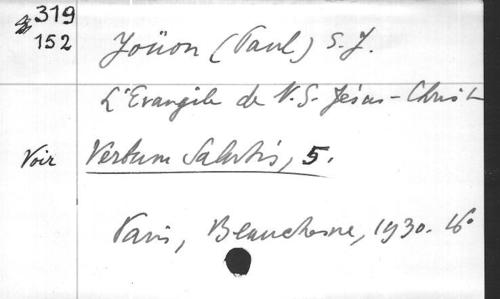 319
152
Joüon (Paul) S.J.
L'Evangile de N.-S. Jésus-Christ
Voir Verbum Salutis, 5.
Paris, Beauchesne, 1930. 16°